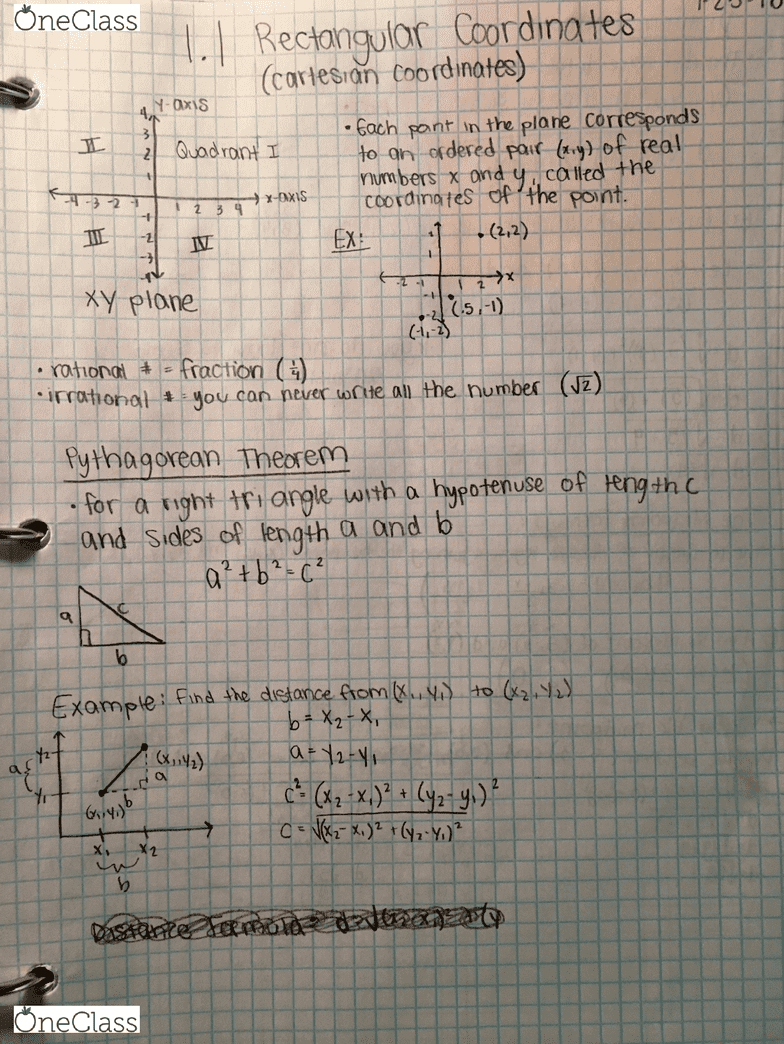 OneClass
1.1 Rectangular Coordinates
(cartesian coordinates)
Y-axis
4
3
2
1
II
Quadrant I
-4 -3 -2 -1
1 2 3 4
x-axis
-1
-2
-3
-4
III
IV
XY plane
• Each point in the plane corresponds
to an ordered pair (x,y) of real
numbers x and y, called the
coordinates of the point.
EX:
(2,2)
1
-2 -1
1 2
x
-1
-2
(.5,-1)
(-1,-2)
• rational # = fraction (1/4)
• irrational # = you can never write all the number (√2)
Pythagorean Theorem
• for a right triangle with a hypotenuse of length c
and sides of length a and b
a² + b² = c²
a
c
b
Example: Find the distance from (x₁,y₁) to (x₂,y₂)
b = x₂ - x₁
a = y₂ - y₁
c² = (x₂ - x₁)² + (y₂ - y₁)²
c = √(x₂ - x₁)² + (y₂ - y₁)²
y₂
a
y₁
(x₁,y₂)
a
b
(x₁,y₁)
x₁
x₂
b
OneClass